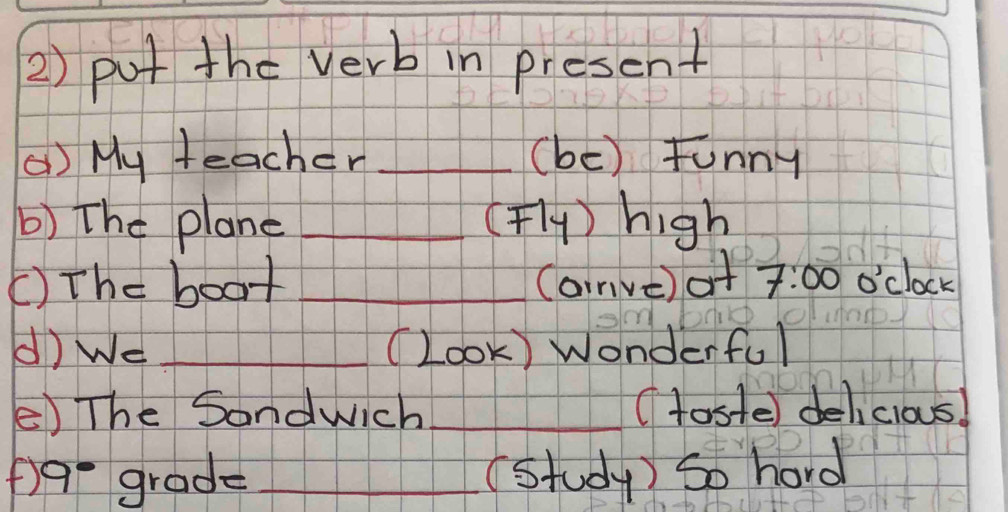 2) put the verb in present
a) My teacher ______ (be) Funny
b) The plane ________ (Fly) high
c) The boat ___________ (arrive) at 7:00 o'clock
d) We __________ (Look) wonderful
e) The Sandwich _________ (taste) delicious!
f) 9° grade ___________ (Study) So hard